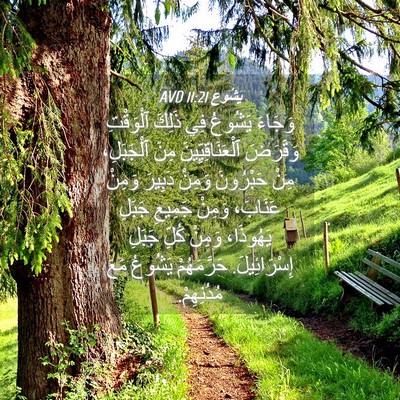 يَشُوع 11:21 AVD
وَجَاءَ يَشُوعُ فِي ذَلِكَ ٱلْوَقْتِ
وَقَرَضَ ٱلْعَنَاقِيِّينَ مِنَ ٱلْجَبَلِ،
مِنْ حَبْرُونَ وَمِنْ دَبِيرَ وَمِنْ
عَنَابَ، وَمِنْ جَمِيعِ جَبَلِ
يَهُوذَا، وَمِنْ كُلِّ جَبَلِ
إِسْرَائِيلَ. حَرَّمَهُمْ يَشُوعُ مَعَ
مُدُنِهِمْ